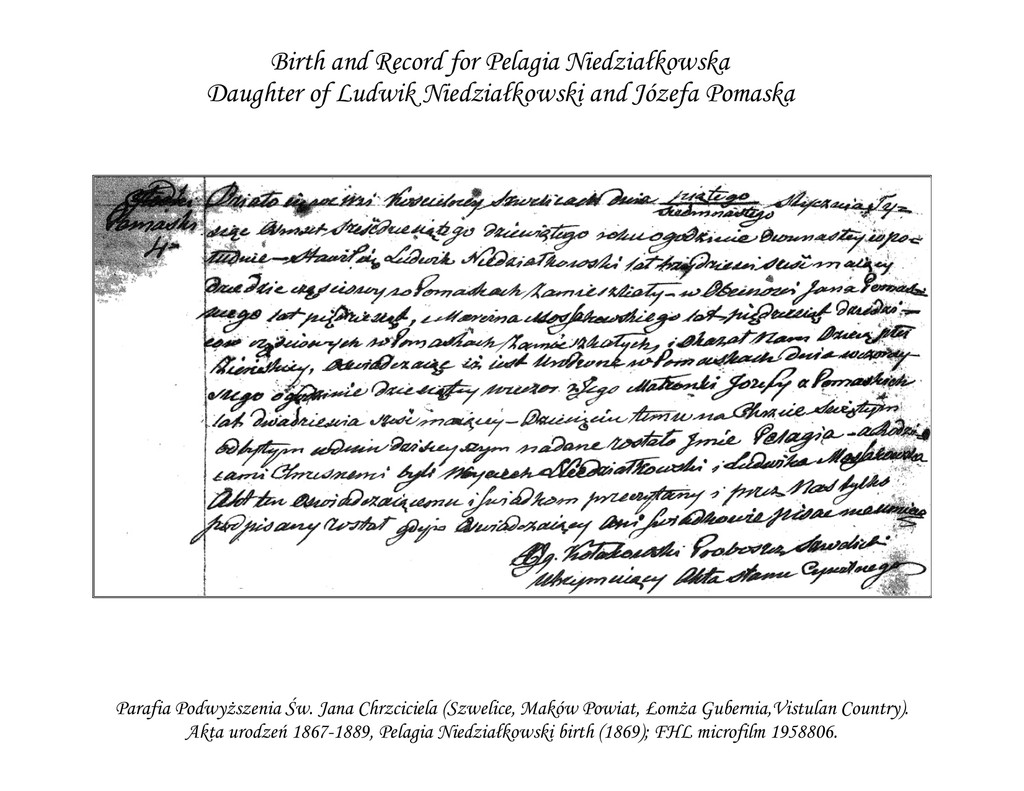 Birth and Record for Pelagia Niedziałkowska
Daughter of Ludwik Niedziałkowski and Józefa Pomaska
Pomaski
4
Działo się we wsi Kościelney Szwelicach dnia piątego / siedmnastego Stycznia Ty=
siąc Ośmset Sześćdziesiątego dziewiątego roku o godzinie dwunastey w po=
łudnie – Stawił się Ludwik Niedziałkowski lat trzydzieści sześć maiący
Dziedzic częściowy w Pomaskach Zamieszkały – w Obecności Jana Pomas=
kiego lat pięćdziesiąt, i Marcina Mossakowskiego lat pięćdziesiąt dziedzi=
ców cząściowych w Pomaskach Zamieszkałych, i okazał Nam Dziecię płci
Żeńskiey, oświadczaiąc iż iest Urodzone w Pomaskach dnia wczoray=
szego o godzinie dziesiątey wieczor z Jego Małżonki Józefy z Pomaskich
lat dwadzieścia sześć maiącey – Dziecięciu temu na Chrzcie Świętym
odbytym w dniu dzisieyszym nadane zostało Jmie Pelagia – a Rodzi=
cami Chrzesnemi byli Woyciech Niedziałkowski i Ludwika Mossakowska
Akt ten oświadczaiącemu i Świadkom przeczytany i przez Nas tylko
podpisany został gdyż Oświadczaiący ani Świadkowie pisać nieumieią
Kołakowski Proboszcz Szwelicki
Utrzymuiący Akta Stanu Cywilnego
Parafia Podwyższenia Św. Jana Chrzciciela (Szwelice, Maków Powiat, Łomża Gubernia,Vistulan Country).
Akta urodzeń 1867-1889, Pelagia Niedziałkowski birth (1869); FHL microfilm 1958806.